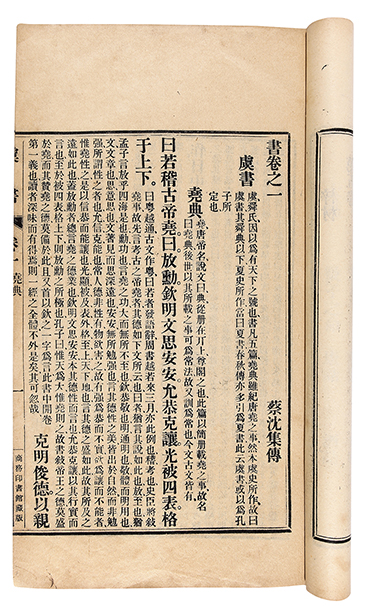 書卷之一　蔡沈集傳
虞書
虞舜氏因以爲有天下之號也書凡五篇堯典雖紀唐堯之事然本虞史所作故曰
虞書其舜典以下夏史所作當曰夏書春秋傳亦多引爲夏書此云虞書或以爲孔
子所
定也
堯典
堯唐帝名說文曰典從冊在丌上尊閣之也此篇以簡冊載堯之事故名
曰堯典後世以其所載之事可爲常法故又訓爲常也今文古文皆有
曰若稽古帝堯曰放勳欽明文思安安允恭克讓光被四表格
于上下
曰粤越通古文作粤曰若者發語辭周書越若來三月亦此例也稽考也史臣將敍
堯事故先言考古之帝堯者其德如下文所云也曰者猶言其說如此也放至也猶
孟子言放乎四海是也勳功也言堯之功大而無所不至也欽恭敬也明通明也敬體而明用也
文文章也思意思也文著見而思深遠也安安無所勉強也言其德性之美皆出於自然而非勉
強所謂性之者也允信克能也常人德非性有物欲害之故有強爲恭而不實欲爲讓而不能者
惟堯性之是以信恭而能讓也光顯被及表外格至上天下地也言其德之盛如此故其所及之
遠如此也蓋放勳者總言堯之德業也欽明文思安安本其德性而言也允恭克讓以其行實而
言也至於被四表格上下則放勳之所極也孔子曰惟天爲大惟堯則之故書敍帝王之德莫盛
於堯而其贊堯之德莫備於此且又首以欽之一字爲言此書中開卷
第一義也讀者深味而有得焉則一經之全體不外是矣其可忽哉
克明俊德以親
書 卷一 堯典 一 商務印書館藏版